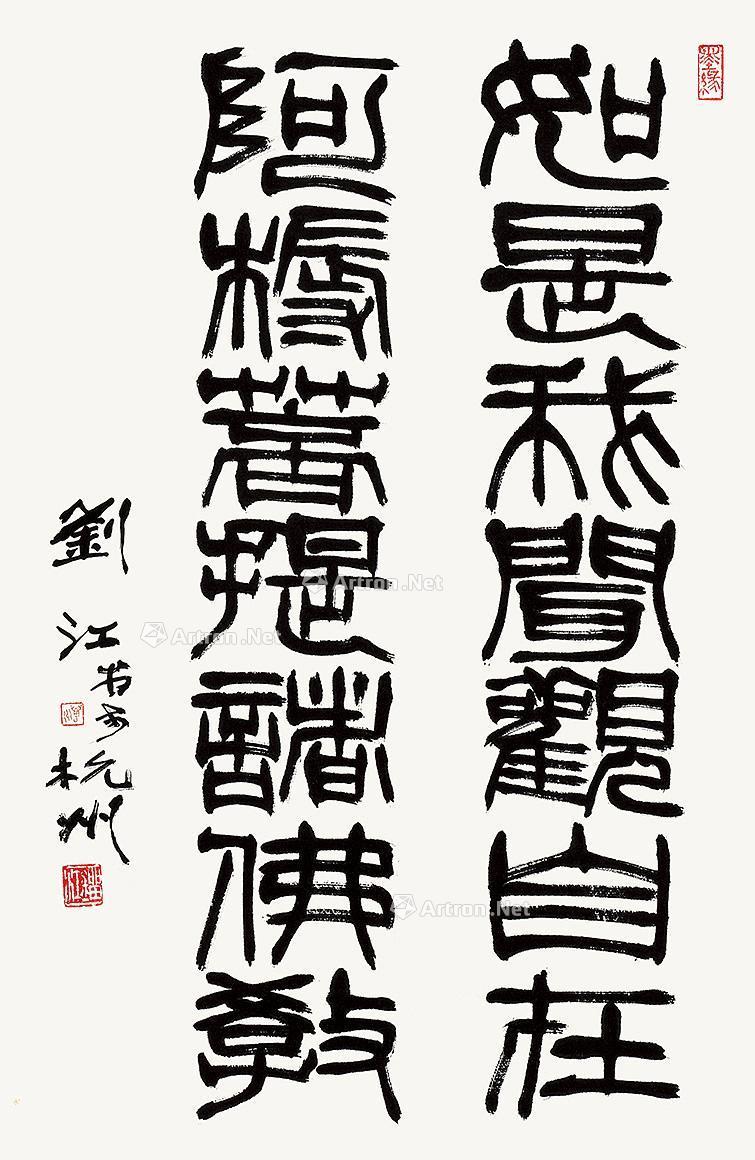 如是我聞觀自在
阿槈菩提諸佛教
劉江書於杭州
Artron.Net
Artron.Net
Artron.Net